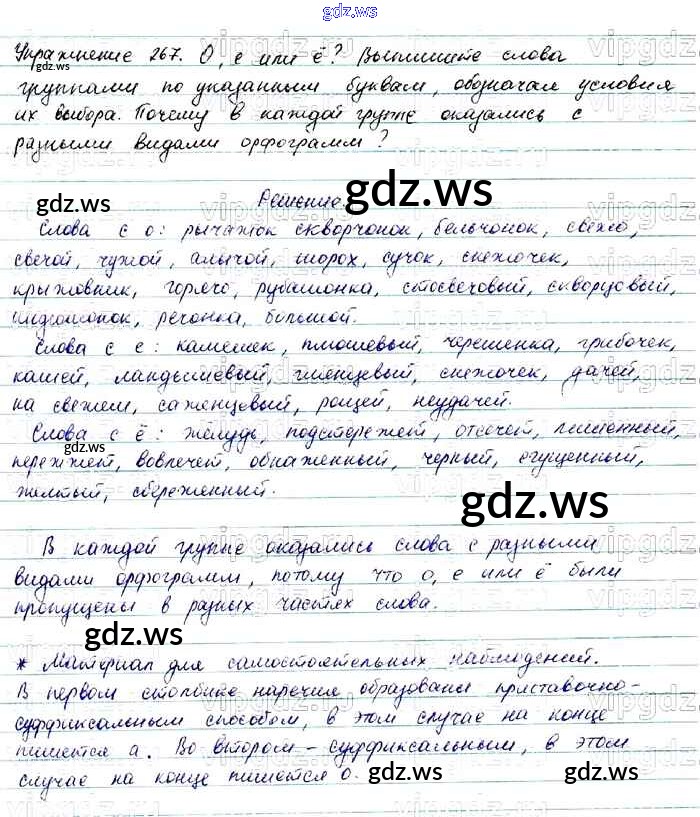 gdz.ws
Упражнение 267. О, е или ё? Выпишите слова
группами по указанным буквам, обозначая условия
их выбора. Почему в каждой группе оказались с
разными видами орфограмм?
Решение.
Слова с о: рычажок скворчонок, бельчонок, свежо,
свечой, чужой, алычой, шорох, сучок, снежочек,
крыжовник, горячо, рубашонка, стосвечовый, скворцовый,
медвежонок, речонка, большой.
Слова с е: камешек, плюшевый, черешенка, грибочек,
кашей, ландышевый, глянцевый, снежочек, дачей,
на свежем, саженцевый, рощей, неудачей.
Слова с ё: жёлудь, подстережет, отсечет, лишенный,
пережжет, вовлечет, обнаженный, черный, сгущенный,
желтый, сбереженный.
В каждой группе оказались слова с разными
видами орфограмм, потому что о, е или ё были
пропущены в разных частях слова.
* Материал для самостоятельных наблюдений.
В первом столбике наречия образованы приставочно-
суффиксальным способом, в этом случае на конце
пишется а. Во втором - суффиксальным, в этом
случае на конце пишется о.
gdz.ws
gdz.ws
gdz.ws
gdz.ws
gdz.ws
gdz.ws
gdz.ws
gdz.ws
gdz.ws